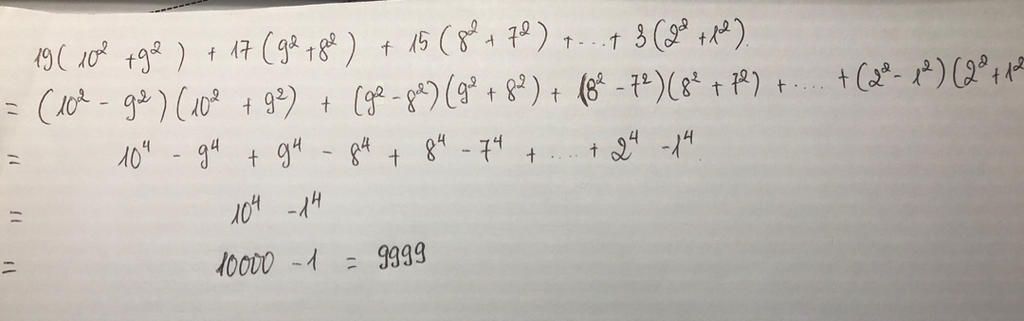 19(10² + 9²) + 17(9² + 8²) + 15(8² + 7²) + ... + 3(2² + 1²).
= (10² - 9²)(10² + 9²) + (9² - 8²)(9² + 8²) + (8² - 7²)(8² + 7²) + .... + (2² - 1²)(2² + 1²
= 10⁴ - 9⁴ + 9⁴ - 8⁴ + 8⁴ - 7⁴ + .... + 2⁴ - 1⁴.
= 10⁴ - 1⁴
= 10000 - 1 = 9999